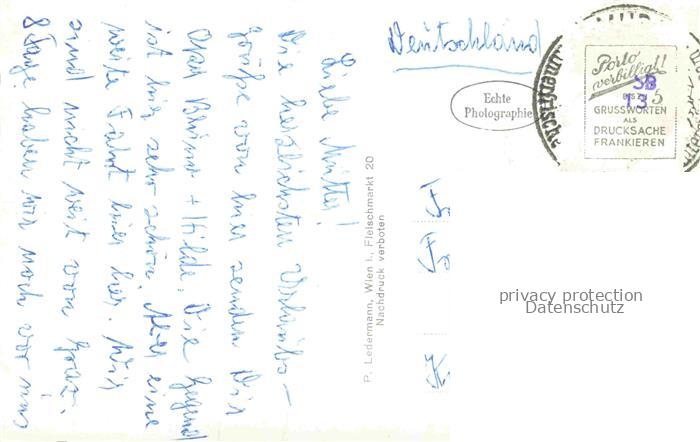 Liebe Mutter!
Die herzlichsten Urlaubs-
grüße von hier senden Dir
Opa Blümo + Hilde. Die Gegend
ist hier sehr schön. Aber eine
weite Fahrt hier her. Wir
sind nicht weit von Graz.
8 Tage haben wir noch vor uns
P. Ledermann, Wien I., Fleischmarkt 20
Nachdruck verboten
Deutschland
Echte
Photographie
Porto
verbilligt!
BIS ZU 5
GRUSSWORTEN
ALS
DRUCKSACHE
FRANKIEREN
SB
13
privacy protection
Datenschutz